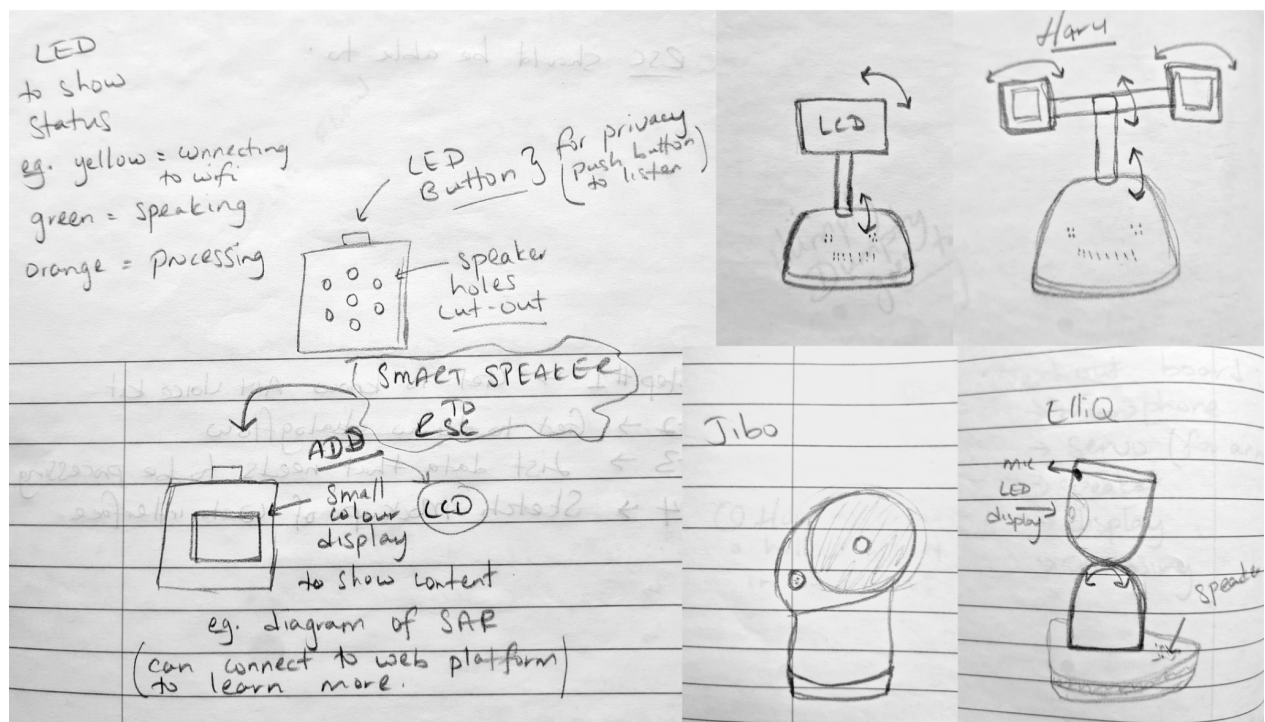 LED
to show
status
eg. yellow = connecting
to wifi
green = speaking
orange = processing
LED
Button } for privacy
(push button
to listen)
speaker
holes
cut-out
SMART SPEAKER
TO
ESC
ADD
small
colour
display
LCD
to show content
eg. diagram of SAR
(can connect to web platform
to learn more.)
LCD
Haru
Jibo
ElliQ
Mic
LED
display
speaker